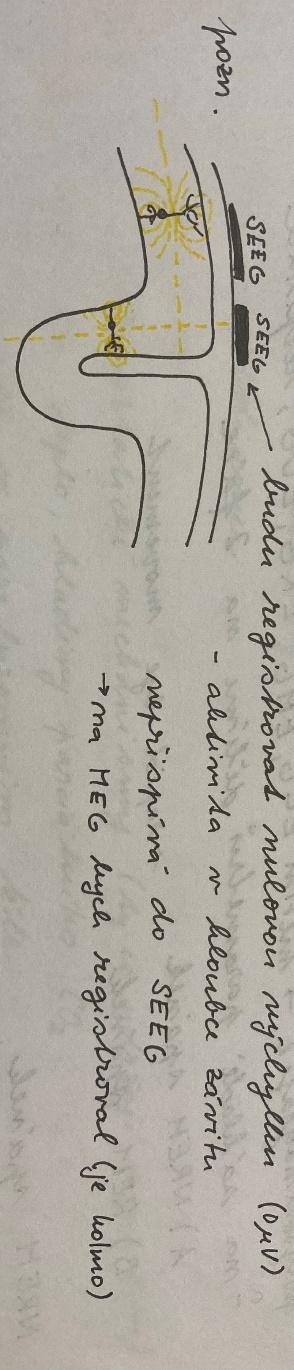 pozn.
SEEG SEEG
budu registrovat nulovou výchylku (0μV)
- aktivita v hloubce závitu
nepřispívá do SEEG
→ na MEG bych registroval (je kolmo)